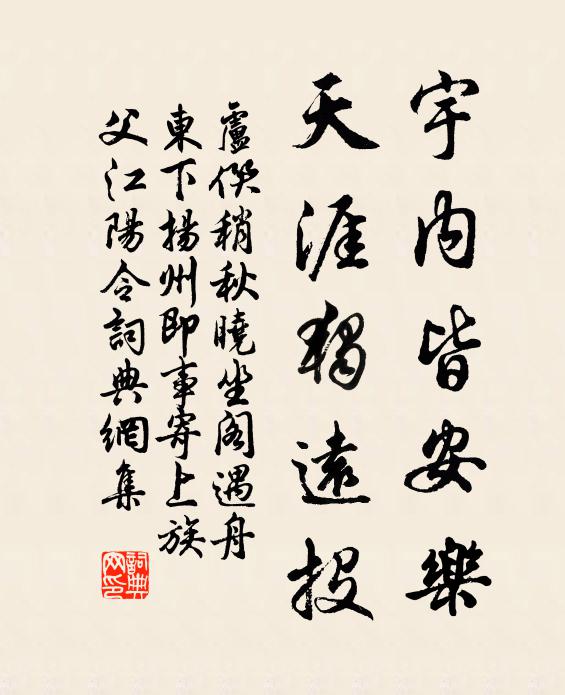 宇内皆安樂
天涯獨遠投
盧僎稍秋曉坐閣遇舟
東下揚州即事寄上族
父江陽令詞典網集
詞典網印